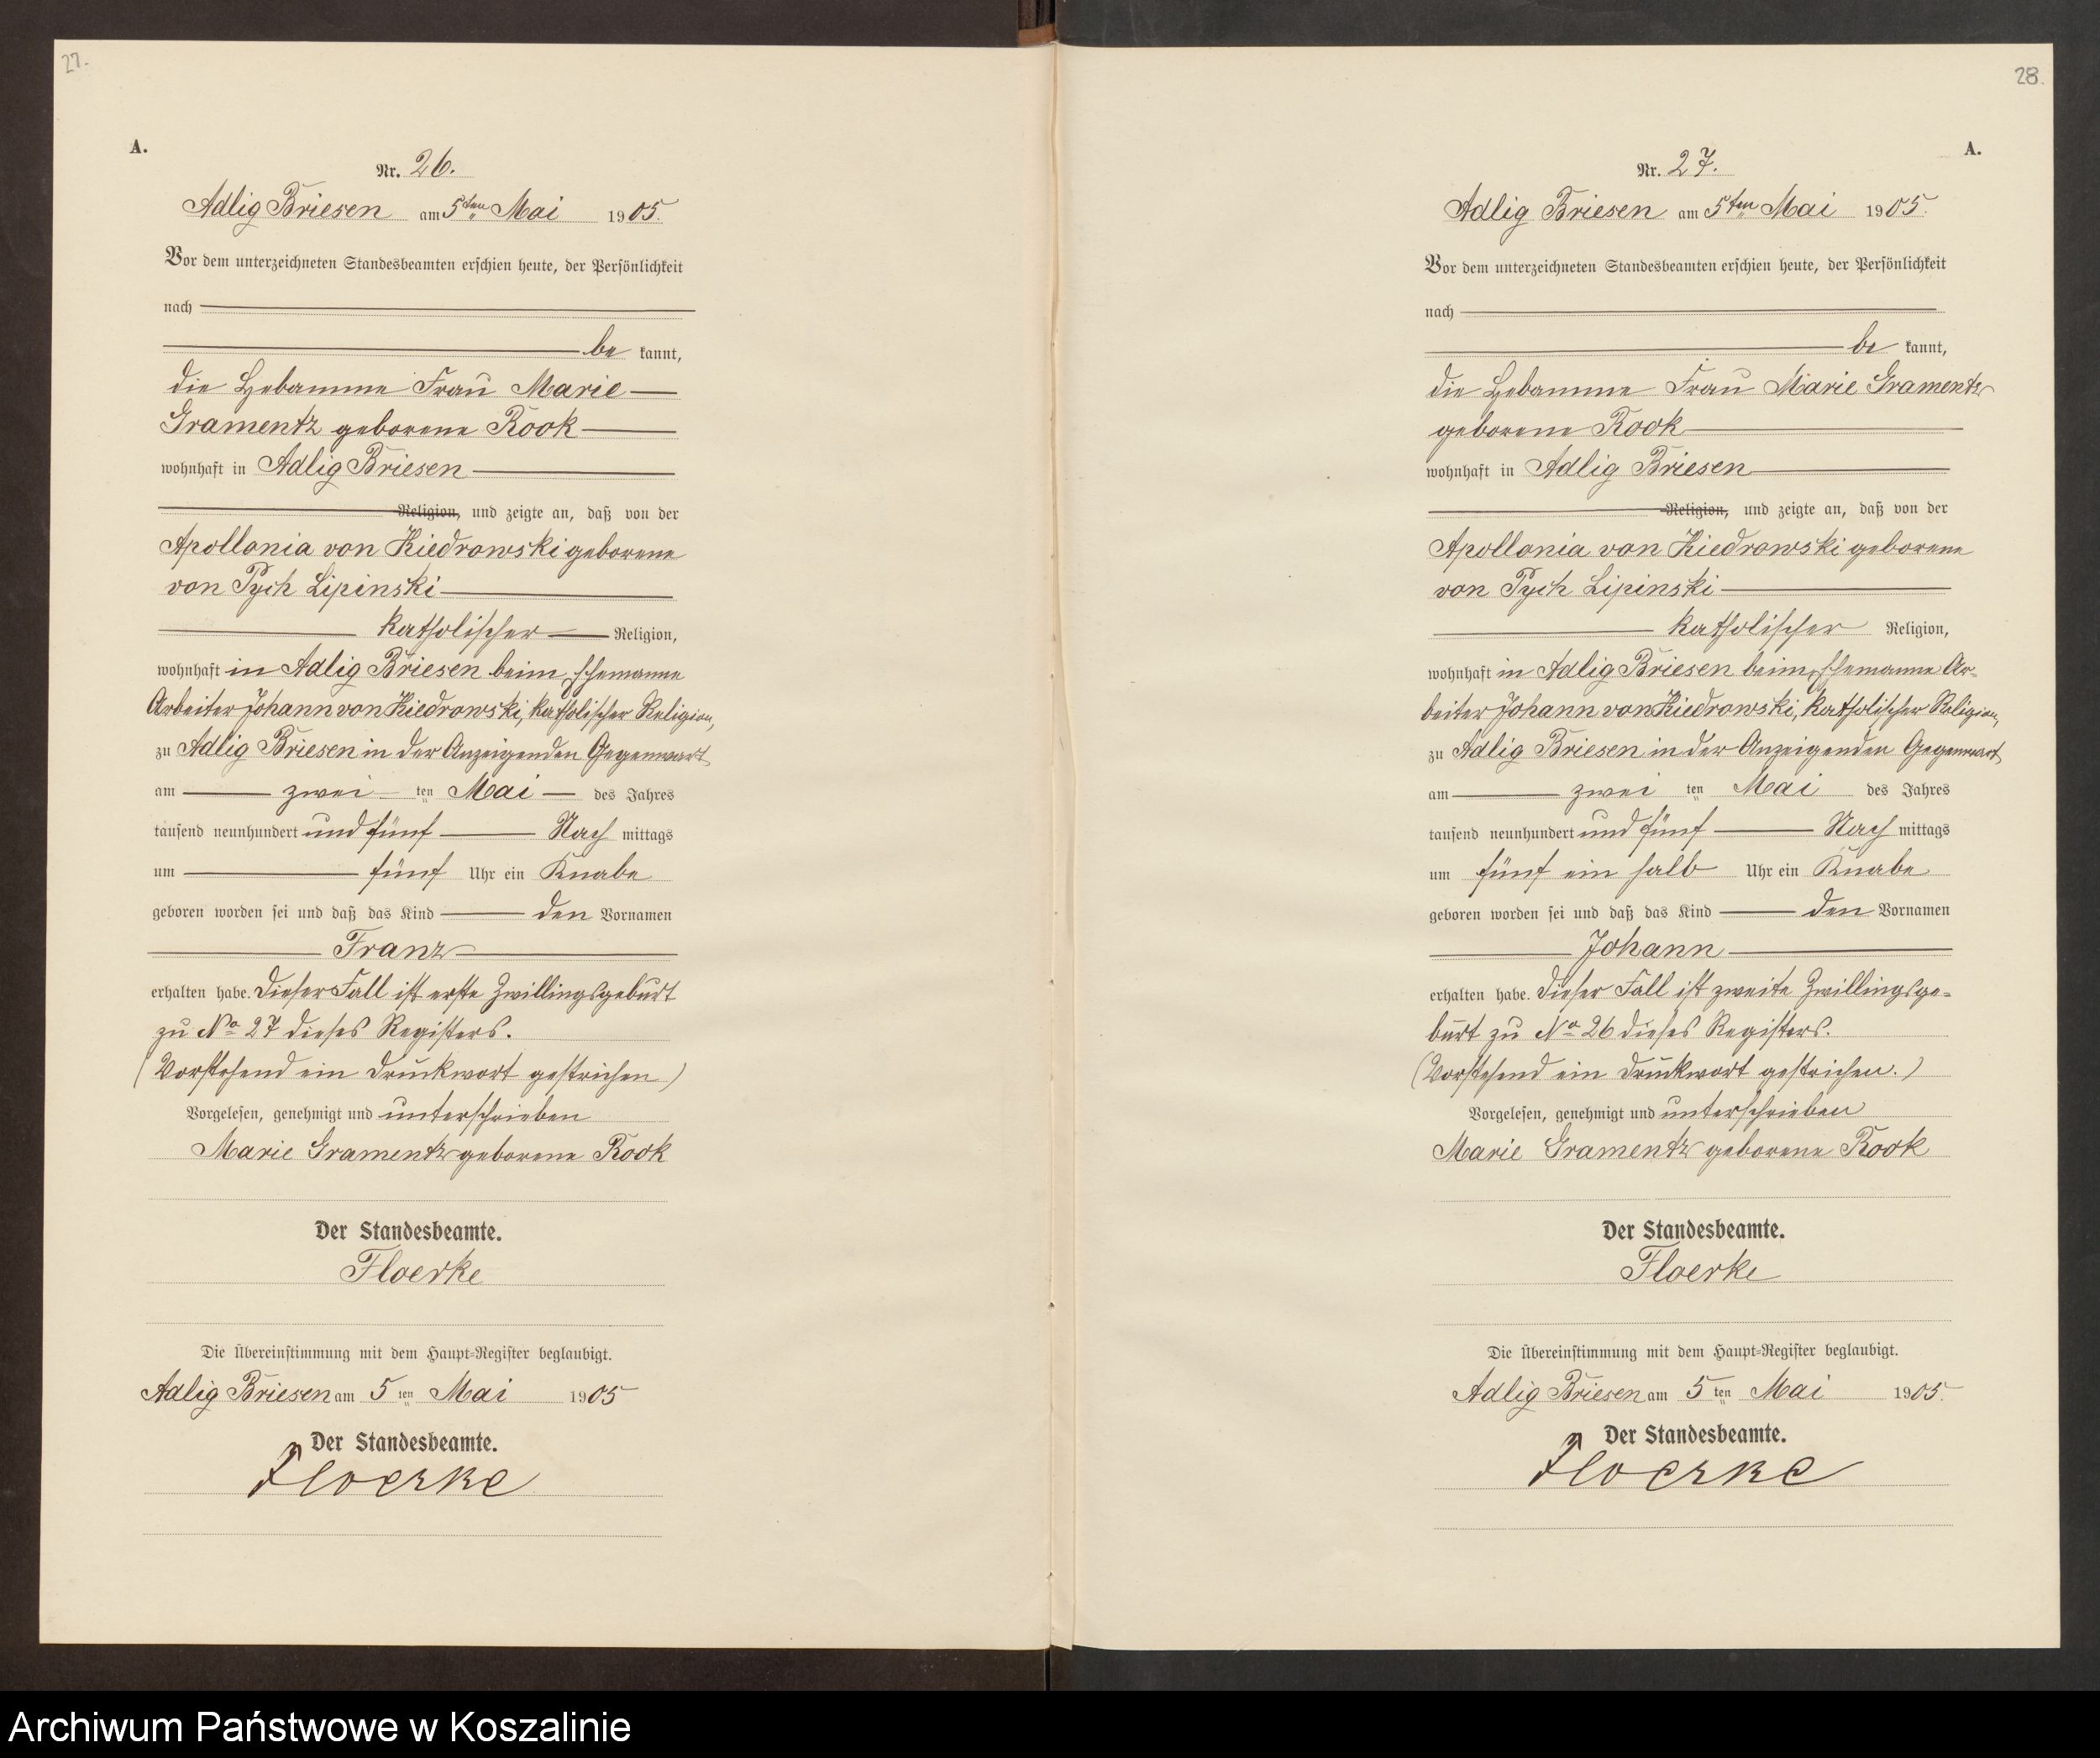 27.
A.
Nr. 26.
Adlig Briesen am 5ten Mai 1905.
Vor dem unterzeichneten Standesbeamten erschien heute, der Persönlichkeit
nach
be kannt,
die Hebamme Frau Marie
Gramentz geborene Rook
wohnhaft in Adlig Briesen
Religion, und zeigte an, daß von der
Apollonia von Kiedrowski geborene
von Pych Lipinski
katholischer Religion,
wohnhaft in Adlig Briesen beim Ehemanne
Arbeiter Johann von Kiedrowski, katholischer Religion,
zu Adlig Briesen in der Anzeigenden Gegenwart
am zwei ten Mai des Jahres
tausend neunhundert und fünf Nach mittags
um fünf Uhr ein Knabe
geboren worden sei und daß das Kind den Vornamen
Franz
erhalten habe. Dieser Fall ist erste Zwillingsgeburt
zu No 27 dieses Registers.
(Vorstehend ein Druckwort gestrichen)
Vorgelesen, genehmigt und unterschrieben
Marie Gramentz geborene Rook
Der Standesbeamte.
Floerke
Die Übereinstimmung mit dem Haupt-Register beglaubigt.
Adlig Briesen am 5 ten Mai 1905
Der Standesbeamte.
Floerke
28.
A.
Nr. 27.
Adlig Briesen am 5ten Mai 1905.
Vor dem unterzeichneten Standesbeamten erschien heute, der Persönlichkeit
nach
be kannt,
die Hebamme Frau Marie Gramentz
geborene Rook
wohnhaft in Adlig Briesen
Religion, und zeigte an, daß von der
Apollonia von Kiedrowski geborene
von Pych Lipinski
katholischer Religion,
wohnhaft in Adlig Briesen beim Ehemanne Ar-
beiter Johann von Kiedrowski, katholischer Religion,
zu Adlig Briesen in der Anzeigenden Gegenwart
am zwei ten Mai des Jahres
tausend neunhundert und fünf Nach mittags
um fünf ein halb Uhr ein Knabe
geboren worden sei und daß das Kind den Vornamen
Johann
erhalten habe. Dieser Fall ist zweite Zwillingsge-
burt zu No 26 dieses Registers.
(Vorstehend ein Druckwort gestrichen.)
Vorgelesen, genehmigt und unterschrieben
Marie Gramentz geborene Rook
Der Standesbeamte.
Floerke
Die Übereinstimmung mit dem Haupt-Register beglaubigt.
Adlig Briesen am 5 ten Mai 1905.
Der Standesbeamte.
Floerke
Archiwum Państwowe w Koszalinie